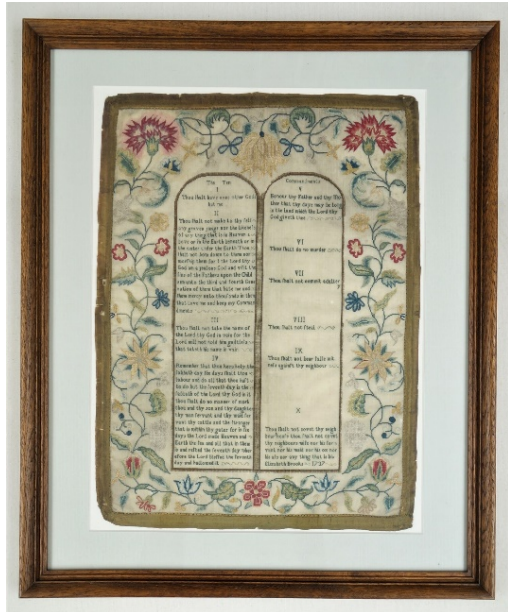 The Ten
I
Thou Shalt have none other Gods
but me
II
Thou Shalt not make to thy self
any graven image nor the
of any thing that is in Heaven
in the Earth beneath or in
the water under the Earth Thou
shalt not bow down to them nor
worship them for I the Lord thy
God am a jealous God and visit the
Sins of the Fathers upon the Child
the third and fourth Gene
ration of them that hate me and
mercy unto thousands in them
that love me and keep my Comman
III
Thou Shalt not take the name of
the Lord thy God in vain for the
Lord will not hold him guiltless
that taketh his name in vain
IV
Remember that thou keep holy the
Sabbath day Six days shalt thou
labour and do all that thou hast
to do but the seventh day is the
Sabbath of the Lord thy God in it
Thou shalt do no manner of work
thou and thy son and thy daughter
thy man servant and thy maid ser
vant thy cattle and the stranger
that is within thy gates for in Six
days the Lord made Heaven and
Earth the Sea and all that in them
is and rested the seventh day wher
efore the Lord blessed the seventh
day and hallowed it
Commandments
Honour thy Father and thy Mo
ther that thy days may be long
in the land which the Lord thy
God giveth thee
VI
Thou Shalt do no murder
VII
Thou Shalt not commit adulter
y
VIII
Thou Shalt not Steal
IX
Thou Shalt not bear false wit
ness against thy neighbour
X
Thou Shalt not covet thy neigh
bour's house thou shalt not covet
thy neighbours wife nor his ser
vant nor his maid nor his ox nor
his ass nor any thing that is his
Elizabeth Brooks 1737